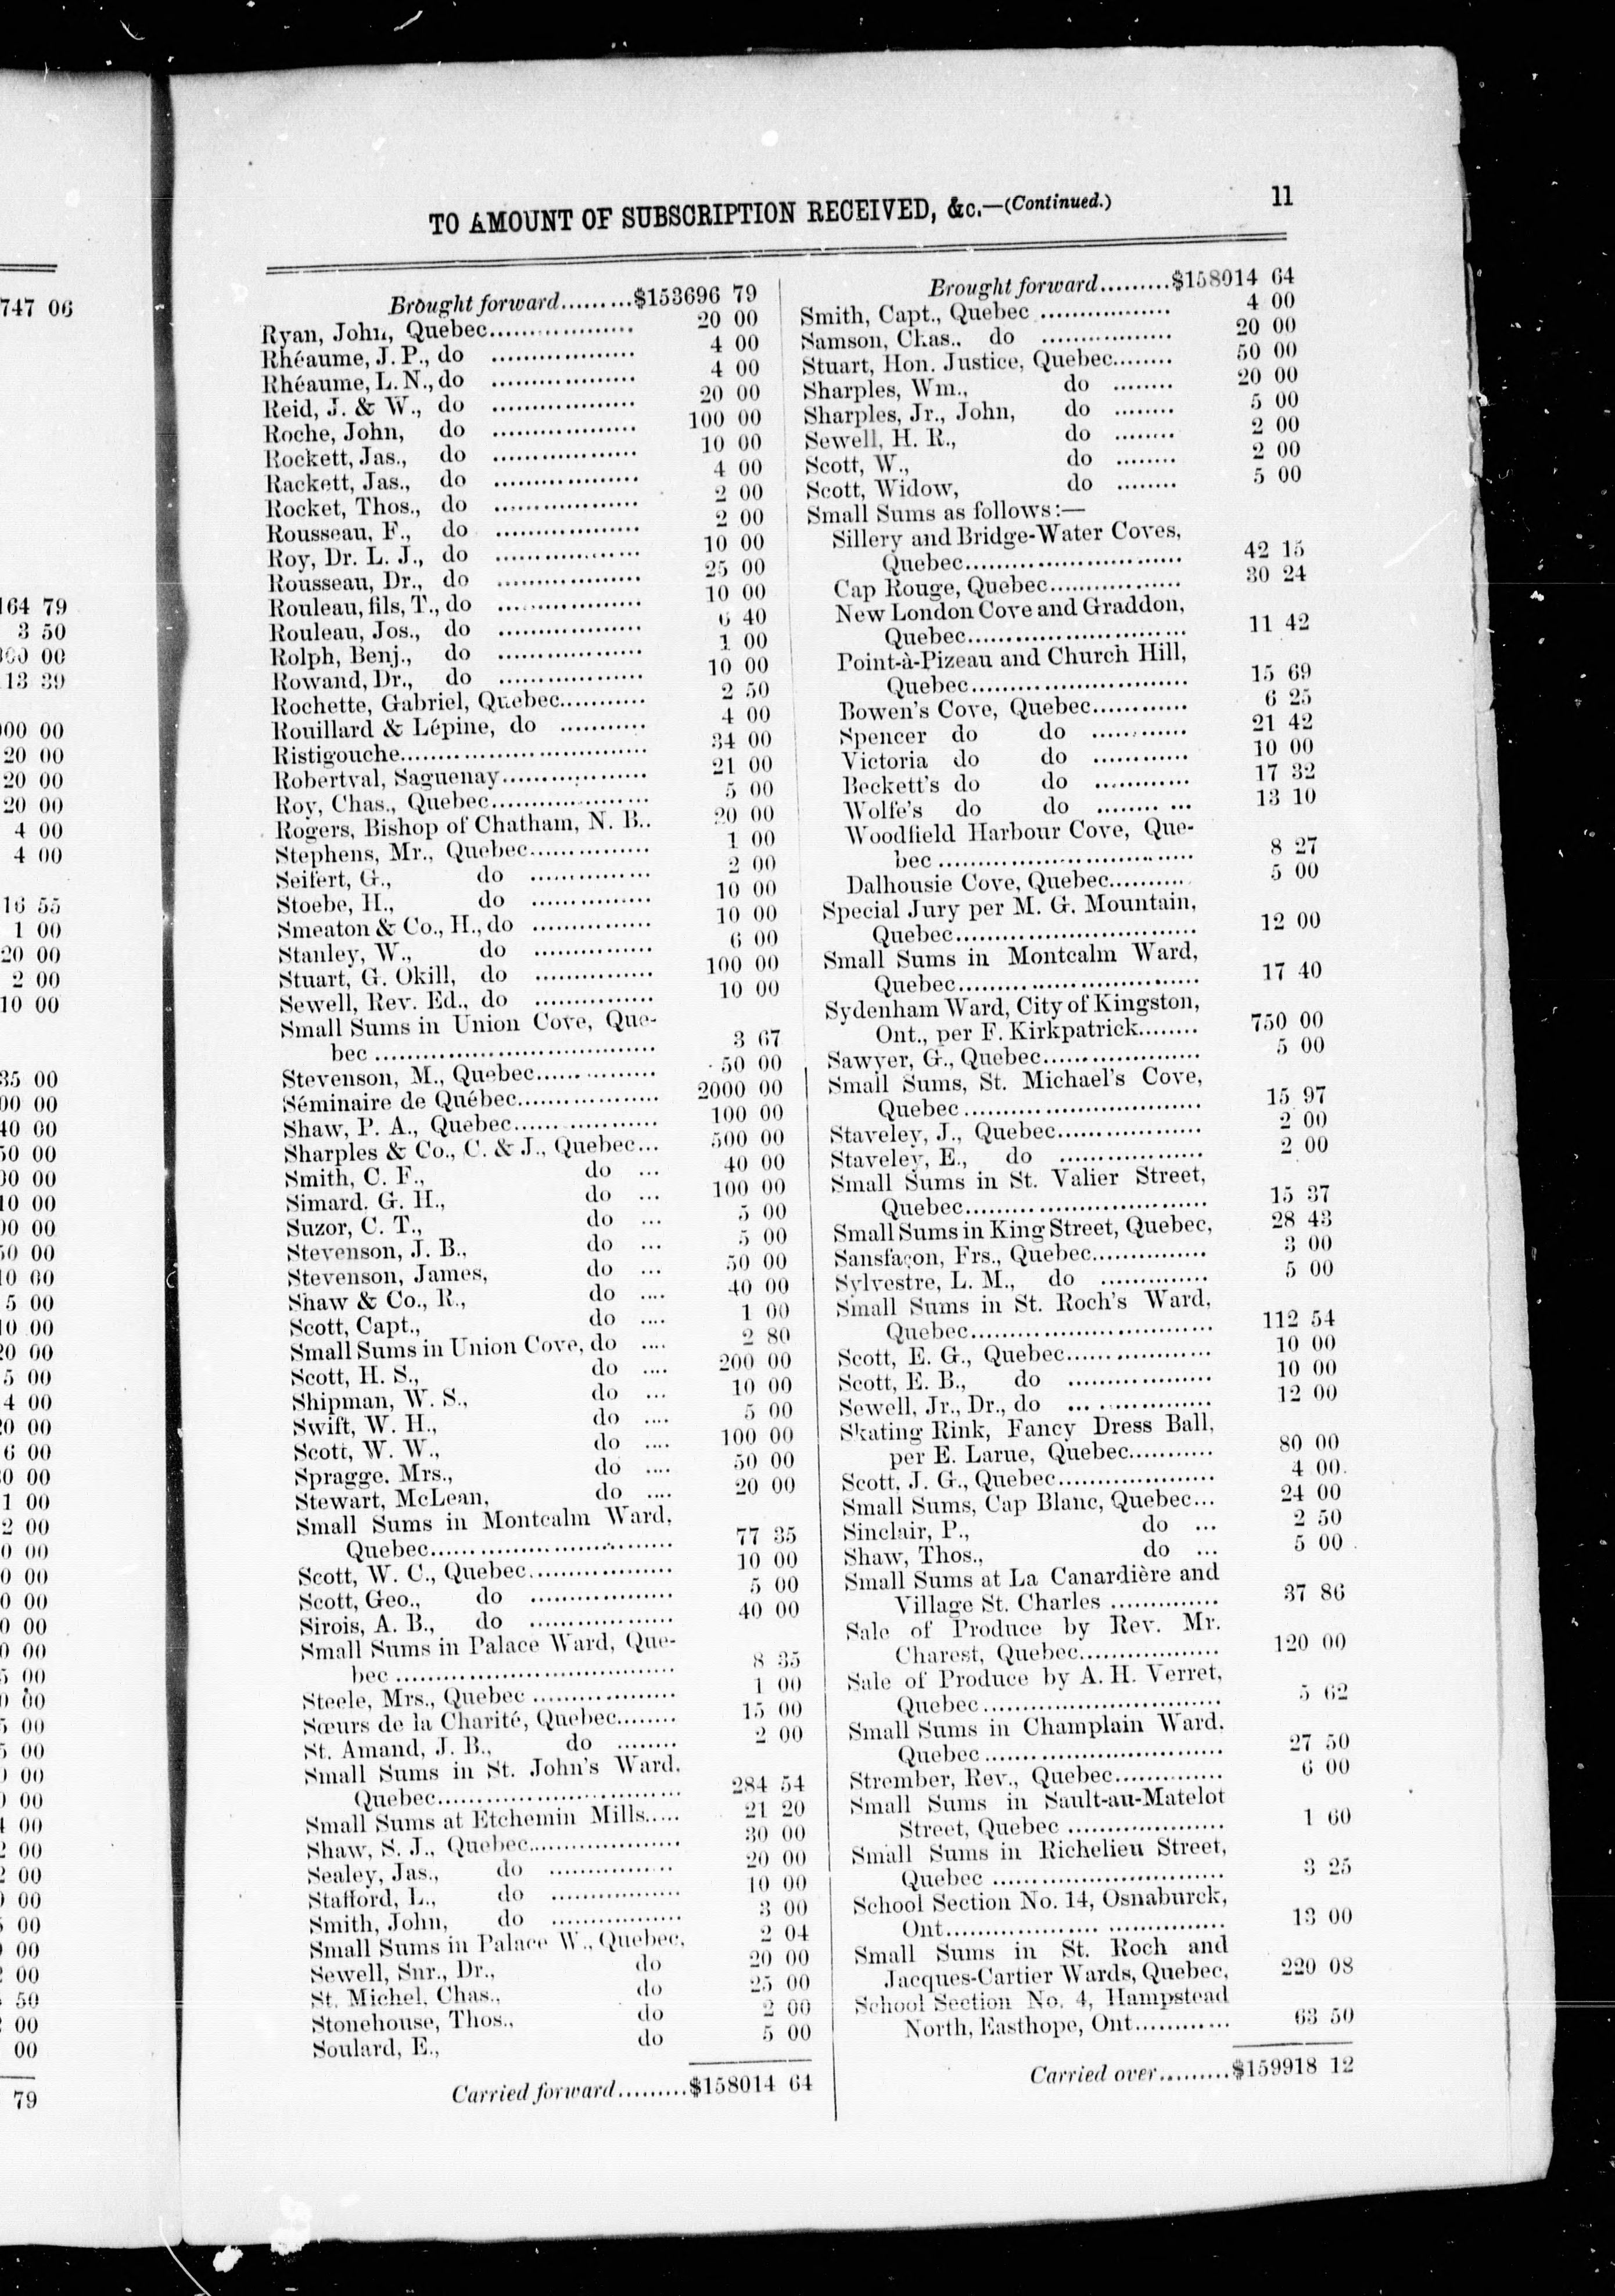 747 06
164 79
3 50
00 00
13 39
000 00
20 00
20 00
20 00
4 00
4 00
16 55
1 00
20 00
2 00
10 00
35 00
00 00
40 00
50 00
00 00
10 00
00 00
50 00
10 00
5 00
10 00
20 00
5 00
4 00
20 00
6 00
0 00
1 00
2 00
0 00
0 00
0 00
0 00
0 00
5 00
0 00
5 00
5 00
00
00
00
00
00
00
00
00
00
50
00
00
79
TO AMOUNT OF SUBSCRIPTION RECEIVED, &c.—(Continued.) 11
Brought forward.........$153696 79
Ryan, John, Quebec.................. 20 00
Rhéaume, J. P., do .................. 4 00
Rhéaume, L. N., do .................. 4 00
Reid, J. & W., do .................. 20 00
Roche, John, do .................. 100 00
Rockett, Jas., do .................. 10 00
Rackett, Jas., do .................. 4 00
Rocket, Thos., do .................. 2 00
Rousseau, F., do .................. 2 00
Roy, Dr. L. J., do .................. 10 00
Rousseau, Dr., do .................. 25 00
Rouleau, fils, T., do .................. 10 00
Rouleau, Jos., do .................. 6 40
Rolph, Benj., do .................. 1 00
Rowand, Dr., do .................. 10 00
Rochette, Gabriel, Quebec........... 2 50
Rouillard & Lépine, do ........... 4 00
Ristigouche............................... 34 00
Robertval, Saguenay................... 21 00
Roy, Chas., Quebec.................... 5 00
Rogers, Bishop of Chatham, N. B.. 20 00
Stephens, Mr., Quebec............... 1 00
Seifert, G., do ............... 2 00
Stoebe, H., do ............... 10 00
Smeaton & Co., H., do ............... 10 00
Stanley, W., do ............... 6 00
Stuart, G. Okill, do ............... 100 00
Sewell, Rev. Ed., do ............... 10 00
Small Sums in Union Cove, Que-
bec .................................... 3 67
Stevenson, M., Quebec............... 50 00
Séminaire de Québec.................. 2000 00
Shaw, P. A., Quebec.................. 100 00
Sharples & Co., C. & J., Quebec... 500 00
Smith, C. F., do ... 40 00
Simard. G. H., do ... 100 00
Suzor, C. T., do ... 5 00
Stevenson, J. B., do ... 5 00
Stevenson, James, do ... 50 00
Shaw & Co., R., do .... 40 00
Scott, Capt., do .... 1 00
Small Sums in Union Cove, do .... 2 80
Scott, H. S., do .... 200 00
Shipman, W. S., do ... 10 00
Swift, W. H., do .... 5 00
Scott, W. W., do .... 100 00
Spragge. Mrs., do .... 50 00
Stewart, McLean, do .... 20 00
Small Sums in Montcalm Ward,
Quebec............................... 77 35
Scott, W. C., Quebec.................. 10 00
Scott, Geo., do .................. 5 00
Sirois, A. B., do .................. 40 00
Small Sums in Palace Ward, Que-
bec .................................... 8 35
Steele, Mrs., Quebec .................. 1 00
Sœurs de la Charité, Quebec........ 15 00
St. Amand, J. B., do ........ 2 00
Small Sums in St. John's Ward,
Quebec............................... 284 54
Small Sums at Etchemin Mills..... 21 20
Shaw, S. J., Quebec................... 30 00
Sealey, Jas., do ............... 20 00
Stafford, L., do ................ 10 00
Smith, John, do ................ 3 00
Small Sums in Palace W., Quebec, 2 04
Sewell, Snr., Dr., do 20 00
St. Michel, Chas., do 25 00
Stonehouse, Thos., do 2 00
Soulard, E., do 5 00
Carried forward.........$158014 64
Brought forward.........$158014 64
Smith, Capt., Quebec ................. 4 00
Samson, Chas., do ................. 20 00
Stuart, Hon. Justice, Quebec........ 50 00
Sharples, Wm., do ........ 20 00
Sharples, Jr., John, do ........ 5 00
Sewell, H. R., do ........ 2 00
Scott, W., do ........ 2 00
Scott, Widow, do ........ 5 00
Small Sums as follows:—
Sillery and Bridge-Water Coves,
Quebec............................ 42 15
Cap Rouge, Quebec................. 30 24
New London Cove and Graddon,
Quebec............................ 11 42
Point-à-Pizeau and Church Hill,
Quebec............................ 15 69
Bowen's Cove, Quebec............ 6 25
Spencer do do ............ 21 42
Victoria do do ............ 10 00
Beckett's do do ............ 17 32
Wolfe's do do ........ ... 13 10
Woodfield Harbour Cove, Que-
bec ................................ 8 27
Dalhousie Cove, Quebec.......... 5 00
Special Jury per M. G. Mountain,
Quebec............................... 12 00
Small Sums in Montcalm Ward,
Quebec............................... 17 40
Sydenham Ward, City of Kingston,
Ont., per F. Kirkpatrick........ 750 00
Sawyer, G., Quebec.................... 5 00
Small Sums, St. Michael's Cove,
Quebec............................... 15 97
Staveley, J., Quebec................... 2 00
Staveley, E., do .................. 2 00
Small Sums in St. Valier Street,
Quebec............................... 15 37
Small Sums in King Street, Quebec, 28 43
Sansfaçon, Frs., Quebec............... 3 00
Sylvestre, L. M., do .............. 5 00
Small Sums in St. Roch's Ward,
Quebec............................... 112 54
Scott, E. G., Quebec................... 10 00
Scott, E. B., do .................. 10 00
Sewell, Jr., Dr., do ... .............. 12 00
Skating Rink, Fancy Dress Ball,
per E. Larue, Quebec........... 80 00
Scott, J. G., Quebec.................... 4 00
Small Sums, Cap Blanc, Quebec... 24 00
Sinclair, P., do ... 2 50
Shaw, Thos., do ... 5 00
Small Sums at La Canardière and
Village St. Charles .............. 37 86
Sale of Produce by Rev. Mr.
Charest, Quebec.................. 120 00
Sale of Produce by A. H. Verret,
Quebec............................... 5 62
Small Sums in Champlain Ward,
Quebec............................... 27 50
Strember, Rev., Quebec.............. 6 00
Small Sums in Sault-au-Matelot
Street, Quebec .................... 1 60
Small Sums in Richelieu Street,
Quebec ............................. 3 25
School Section No. 14, Osnaburck,
Ont................... ............... 13 00
Small Sums in St. Roch and
Jacques-Cartier Wards, Quebec, 220 08
School Section No. 4, Hampstead
North, Easthope, Ont............ 63 50
Carried over.........$159918 12